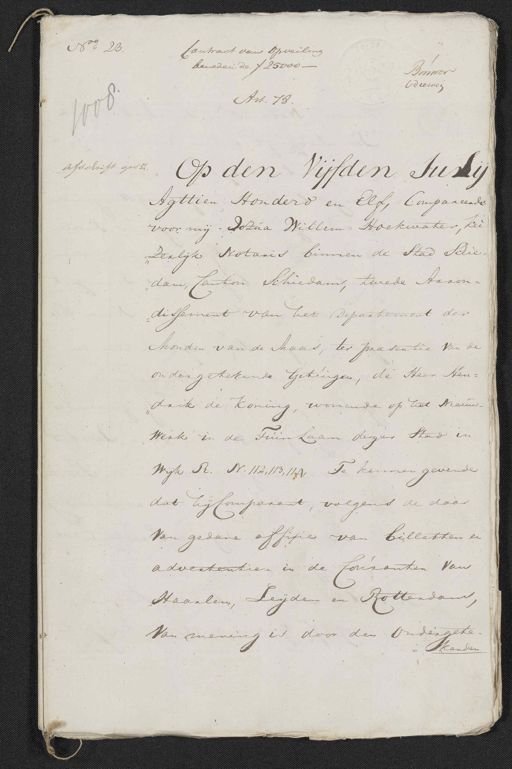 No. 23.
Contract van Opveiling
beneden de ƒ 25000—
Art. 78.
1008.
afschrift gew.
Op den Vijfden Julij
Agttien Honderd en Elf, Compareerde
voor mij Willem Hoekwater, Kei
zerlijk Notaris binnen de Stad Schie-
dam, Canton Schiedam, tweede Arron-
dissement van het Departement der
Monden van de Maas, ter presentie van de
ondergetekende Getuigen, de Heer Hen-
drik de Koning, wonende op het Nieuw-
Werk in de Tuin Laan dezer Stad in
Wijk N. 112, 113, Te kennen gevende
dat hij Comparant, volgens de daar
van gedane affixie van billetten en
advertentien in de Couranten van
Haarlem, Leijden en Rotterdam,
van mening is door den Ondergete-
kenden